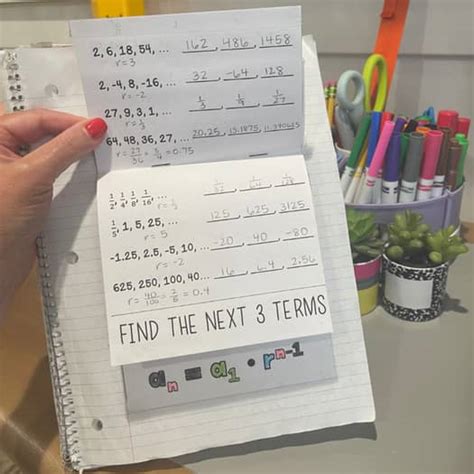 2, 6, 18, 54, ... 162, 486, 1458
r = 3
2, -4, 8, -16, ... 32, -64, 128
r = -2
27, 9, 3, 1, ... 1/3, 1/9, 1/27
r = 1/3
64, 48, 36, 27, ... 20.25, 15.1875, 11.390625
r = 27/36 = 3/4 = 0.75
1/2, 1/4, 1/8, 1/16, ... 1/32, 1/64, 1/128
r = 1/2
1/5, 1, 5, 25, ... 125, 625, 3125
r = 5
-1.25, 2.5, -5, 10, ... -20, 40, -80
r = -2
625, 250, 100, 40... 16, 6.4, 2.56
r = 40/100 = 2/5 = 0.4
FIND THE NEXT 3 TERMS
aₙ = a₁ • rⁿ⁻¹